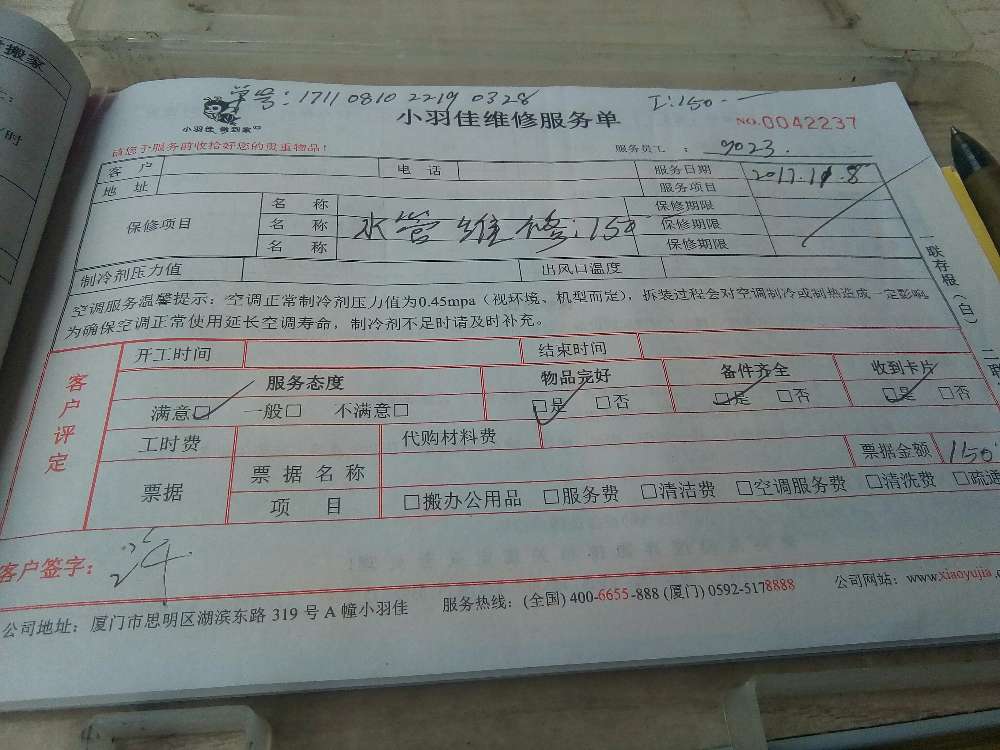 搬家
单号：1711 0810 2219 0328 工:150.一
小羽佳 做到家
小羽佳维修服务单 NO.0042237
请您于服务前收拾好您的贵重物品！ 服务员工 ： 9023.
客 户 电 话 服务日期 2017.11.8
地 址 服务项目
保修项目 名 称 保修期限
名 称 水管维修:150 保修期限
名 称 保修期限
制冷剂压力值 出风口温度
空调服务温馨提示：空调正常制冷剂压力值为0.45mpa（视环境、机型而定），拆装过程会对空调制冷或制热造成一定影响，
为确保空调正常使用延长空调寿命，制冷剂不足时请及时补充。
一联存根（白）
客户评定
开工时间 结束时间
服务态度 物品完好 备件齐全 收到卡片
满意□ 一般□ 不满意□ □是 □否 □是 □否 □是 □否
工时费 代购材料费
票据 票据名称 票据金额 150
项 目 □搬办公用品 □服务费 □清洁费 □空调服务费 □清洗费 □疏通
客户签字：
公司地址：厦门市思明区湖滨东路 319 号 A 幢小羽佳 服务热线：(全国) 400-6655-888 (厦门) 0592-5178888 公司网站：www.xiaoyujia.c